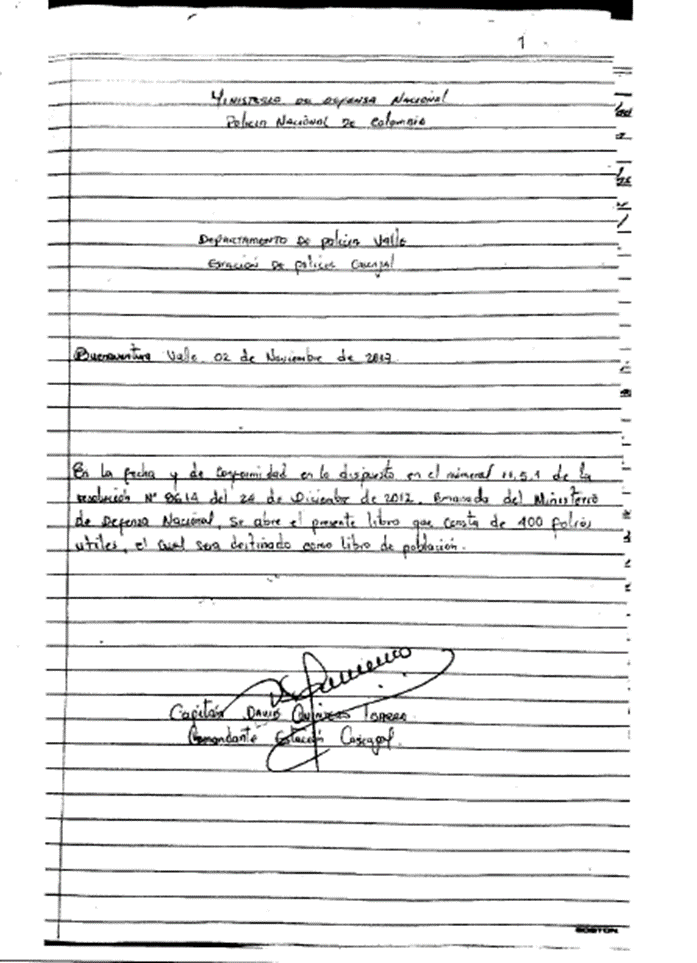 1
MINISTERIO DE DEFENSA NACIONAL
Policia Nacional de Colombia
DEPARTAMENTO DE policia Valle
ESTACIÓN DE policia Cascajal
Buenaventura Valle 02 de Noviembre de 2017.
En la fecha y de conformidad en lo dispuesto en el numeral 11.5.1 de la
resolución N° 0614 del 24 de Diciembre de 2012, Emanada del Ministerio
de Defensa Nacional, se abre el presente libro que consta de 400 folios
utiles, el cual sera destinado como libro de población.
Capitán DAVID IBARRA
Comandante Estación Cascajal.
BOSTON